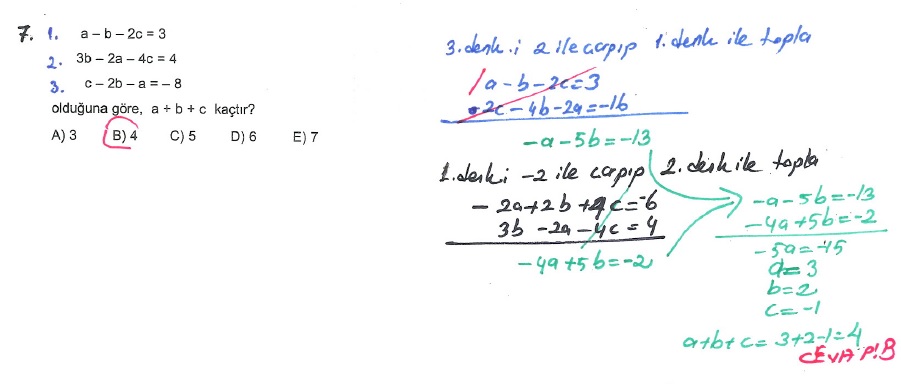 7. 1. a – b – 2c = 3
2. 3b – 2a – 4c = 4
3. c – 2b – a = – 8
olduğuna göre, a + b + c kaçtır?
A) 3 B) 4 C) 5 D) 6 E) 7
3.denk.i 2 ile çarpıp 1.denk ile topla
a-b-2c=3
2c-4b-2a=-16
-a-5b=-13
1.denki -2 ile çarpıp 2.denk ile topla
-2a+2b+4c=-6
3b-2a-4c=4
-4a+5b=-2
-a-5b=-13
-4a+5b=-2
-5a=-15
a=3
b=2
c=-1
a+b+c=3+2-1=4
CEVAP:B